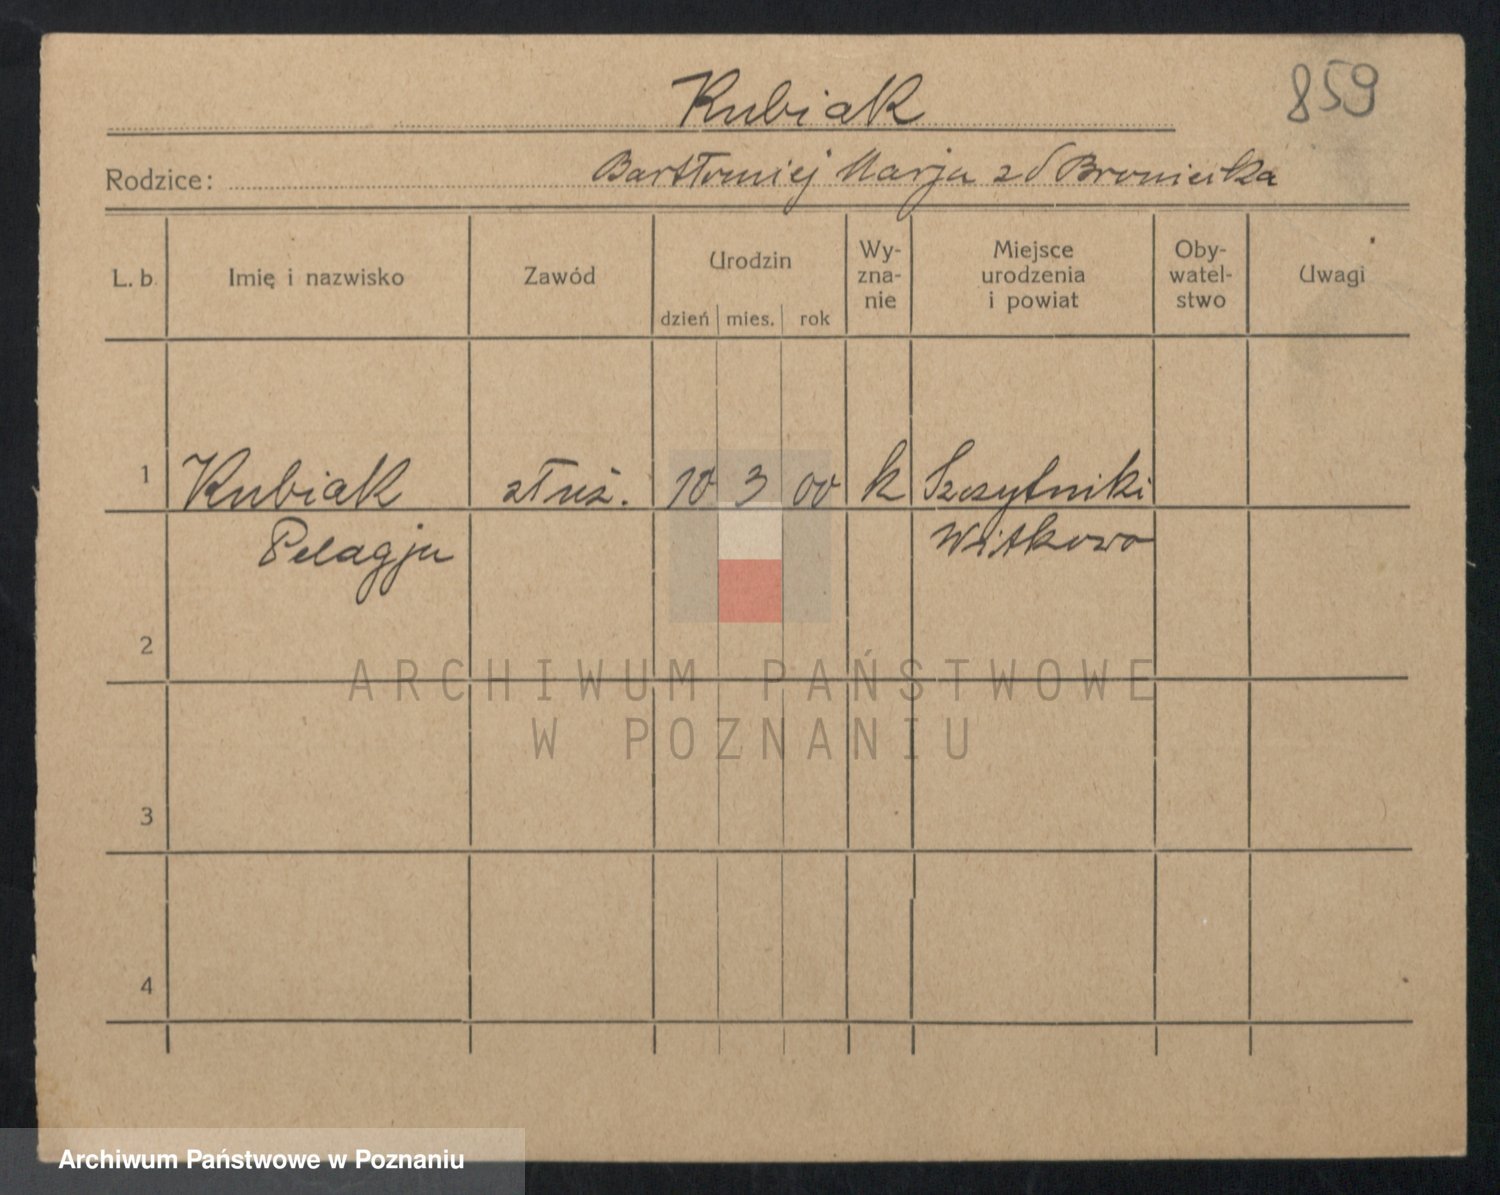 859
Kubiak
Rodzice: Bartłomiej Marja zd Broniecka
L. b. Imię i nazwisko Zawód Urodzin dzień mies. rok Wy-zna-nie Miejsce urodzenia i powiat Oby-watel-stwo Uwagi
1 Kubiak służ. 10 3 00 k Szczytniki
Pelagja Witkowo
2
ARCHIWUM PAŃSTWOWE
W POZNANIU
3
4
Archiwum Państwowe w Poznaniu